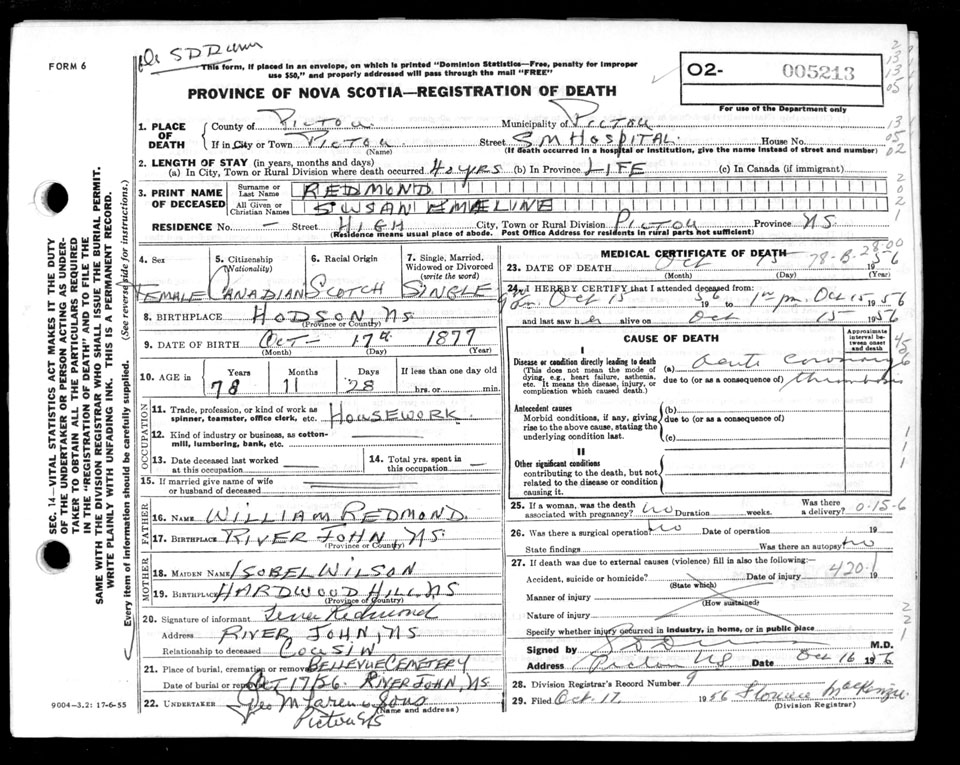 FORM 6
Dr SDDunn
This form, if placed in an envelope, on which is printed "Dominion Statistics—Free, penalty for improper
use $50," and properly addressed will pass through the mail "FREE"
O2- 005213
For use of the Department only
PROVINCE OF NOVA SCOTIA—REGISTRATION OF DEATH
1. PLACE OF DEATH
County of PICTOU Municipality of PICTOU
If in City or Town PICTOU (Name) Street SM HOSPITAL House No.
(If death occurred in a hospital or institution, give the name instead of street and number)
2. LENGTH OF STAY (in years, months and days)
(a) In City, Town or Rural Division where death occurred 40 YRS (b) In Province LIFE (c) In Canada (if immigrant)
3. PRINT NAME OF DECEASED
Surname or Last Name REDMOND
All Given or Christian Names SUSAN EMELINE
RESIDENCE No. — Street HIGH City, Town or Rural Division PICTOU Province NS
(Residence means usual place of abode. Post Office Address for residents in rural parts not sufficient)
4. Sex FEMALE
5. Citizenship (Nationality) CANADIAN
6. Racial Origin SCOTCH
7. Single, Married, Widowed or Divorced (write the word) SINGLE
8. BIRTHPLACE HODSON, NS
(Province or Country)
9. DATE OF BIRTH OCT - 17th 1877
(Month) (Day) (Year)
10. AGE in Years 78 Months 11 Days 28 If less than one day old hrs. or min.
OCCUPATION
11. Trade, profession, or kind of work as spinner, teamster, office clerk, etc. HOUSEWORK
12. Kind of industry or business, as cotton-mill, lumbering, bank, etc.
13. Date deceased last worked at this occupation
14. Total yrs. spent in this occupation
15. If married give name of wife or husband of deceased
FATHER
16. NAME WILLIAM REDMOND
17. BIRTHPLACE RIVER JOHN, NS
(Province or Country)
MOTHER
18. MAIDEN NAME ISOBEL WILSON
19. BIRTHPLACE HARDWOOD HILL, NS
(Province or Country)
20. Signature of informant Redmond
Address RIVER JOHN, NS
Relationship to deceased COUSIN
21. Place of burial, cremation or removal BELLEVUE CEMETERY
Date of burial or removal OCT 17/56 RIVER JOHN, NS
22. UNDERTAKER Geo M Laren & Sons
(Name and address)
Pictou NS
9004—3.2: 17-6-55
MEDICAL CERTIFICATE OF DEATH
23. DATE OF DEATH Oct 15 1956
(Month) (Day)
78-B-28:00
24. I HEREBY CERTIFY that I attended deceased from:
Oct 15 1956 to 1 pm. Oct 15 1956
and last saw her alive on Oct 15 1956
CAUSE OF DEATH
Approximate interval between onset and death
I
Disease or condition directly leading to death
(This does not mean the mode of dying, e.g., heart failure, asthenia, etc. It means the disease, injury, or complication which caused death.)
(a) Acute coronary
due to (or as a consequence of) thrombosis
Antecedent causes
Morbid conditions, if any, giving rise to the above cause, stating the underlying condition last.
(b)
due to (or as a consequence of)
(c)
II
Other significant conditions contributing to the death, but not related to the disease or condition causing it.
25. If a woman, was the death associated with pregnancy? no Duration weeks. Was there a delivery? 0-15-6
26. Was there a surgical operation? no Date of operation 19
State findings Was there an autopsy? no
27. If death was due to external causes (violence) fill in also the following:—
Accident, suicide or homicide? (State which) Date of injury 19
420-1
Manner of injury (How sustained)
Nature of injury
Specify whether injury occurred in industry, in home, or in public place
Signed by SDDunn M.D.
Address Pictou NS Date Oct 16 1956
28. Division Registrar's Record Number 9
29. Filed Oct. 17, 1956 Florence MacKenzie
(Division Registrar)
SEC. 14—VITAL STATISTICS ACT MAKES IT THE DUTY
OF THE UNDERTAKER OR PERSON ACTING AS UNDER-
TAKER TO OBTAIN ALL THE PARTICULARS REQUIRED
IN THE "REGISTRATION OF DEATH" AND TO FILE THE
SAME WITH THE DIVISION REGISTRAR WHO SHALL ISSUE THE BURIAL PERMIT.
WRITE PLAINLY WITH UNFADING INK. THIS IS A PERMANENT RECORD.
Every item of information should be carefully supplied. (See reverse side for instructions.)